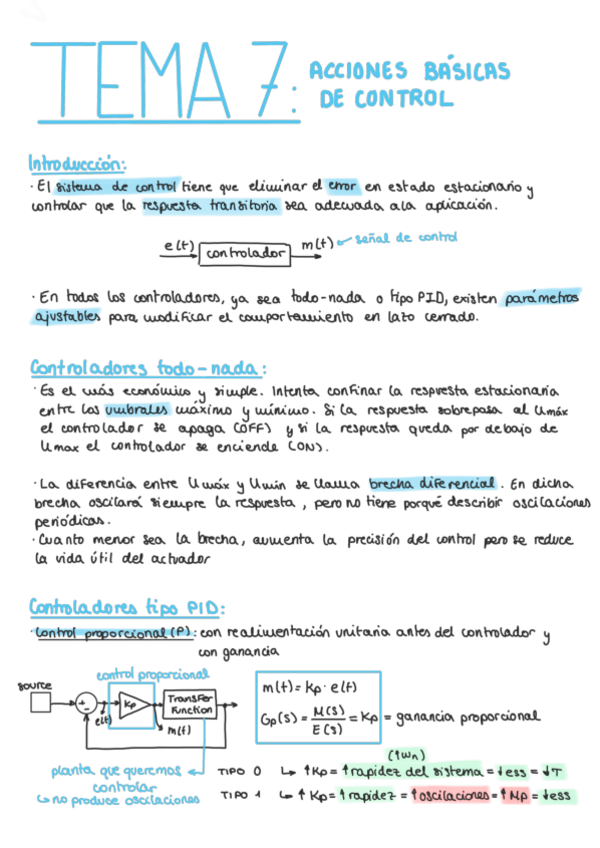 TEMA 7: ACCIONES BÁSICAS
DE CONTROL
Introducción:
· El sistema de control tiene que eliminar el error en estado estacionario y
controlar que la respuesta transitoria sea adecuada a la aplicación.
e(t) controlador m(t) señal de control
· En todos los controladores, ya sea todo-nada o tipo PID, existen parámetros
ajustables para modificar el comportamiento en lazo cerrado.
Controladores todo-nada:
· Es el más económico y simple. Intenta confinar la respuesta estacionaria
entre los umbrales máximo y mínimo. Si la respuesta sobrepasa al Umáx
el controlador se apaga (OFF) y si la respuesta queda por debajo de
Umax el controlador se enciende (ON).
· La diferencia entre Umáx y Umin se llama brecha diferencial. En dicha
brecha oscilará siempre la respuesta, pero no tiene porqué describir oscilaciones
periódicas.
· Cuanto menor sea la brecha, aumenta la precisión del control pero se reduce
la vida útil del actuador
Controladores tipo PID:
· Control proporcional (P): con realimentación unitaria antes del controlador y
con ganancia
control proporcional
source
+ -
e(t)
Kp
Transfer
Function
m(t)
m(t) = Kp · e(t)
Gp(s) = M(s) / E(s) = Kp = ganancia proporcional
planta que queremos
controlar
↳ no produce oscilaciones
(↑wn)
TIPO 0 ↳ ↑Kp = ↑rapidez del sistema = ↓ess = ↓T
TIPO 1 ↳ ↑Kp = ↑rapidez = ↑oscilaciones = ↑Mp = ↓ess